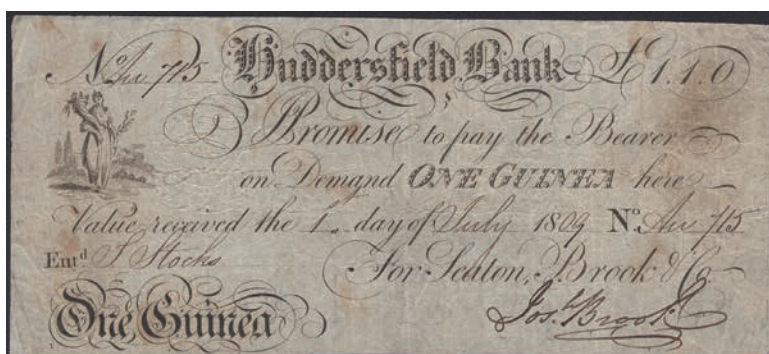 No. 715 Huddersfield Bank £1.1.0
I Promise to pay the Bearer
on Demand ONE GUINEA here
Value received the 1. day of July 1809 No. 715
Entd. Stocks
For Seaton, Brook & Co.
One Guinea Josh. Brook